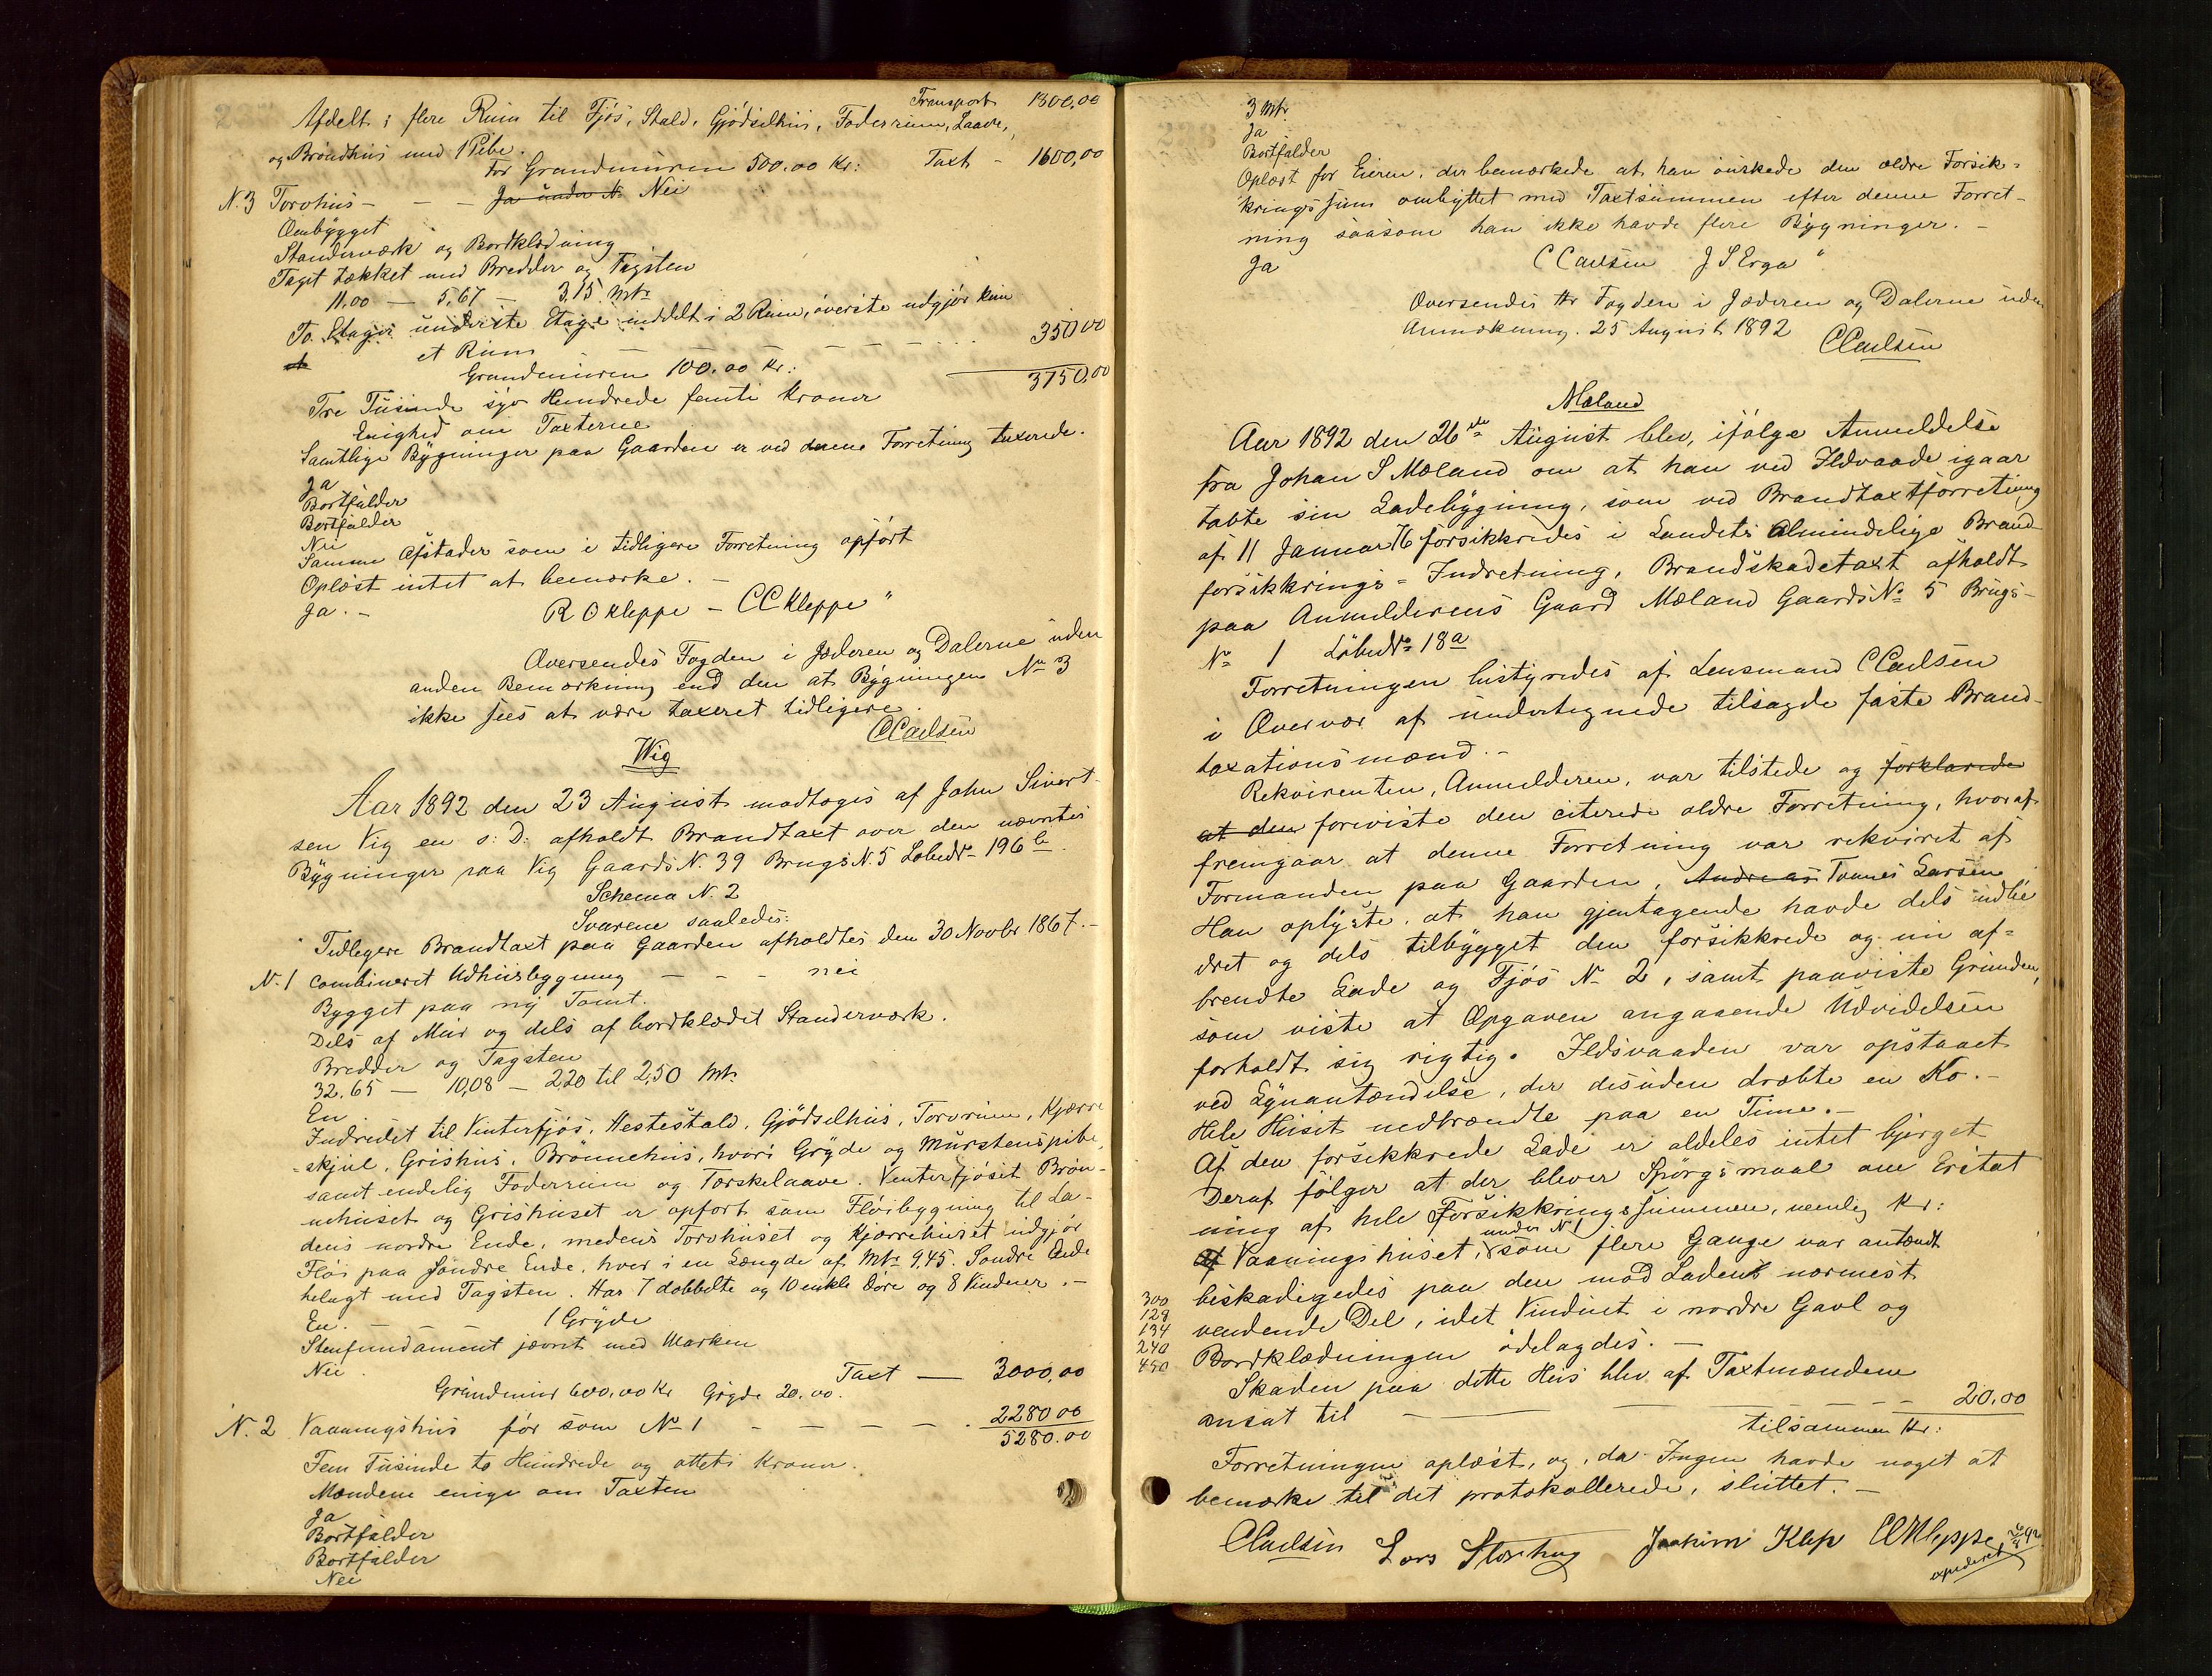 Transport 1800,00
Afdelt i flere Rum til Fjøs, Stald, Gjødselhus, Foderrum, Laave,
og Brøndhus med 1 Pibe.
For Grundmuren 500.00 Kr: Taxt - 1600,00
N. 3 Torvhus - - - Ja under N. Nei
Ombygget
Standerværk og Bordklædning
Taget tækket med Bredder og Tagsten
11.00 — 5,67 — 3,15 Mtr
To Etager underste Etage inddelt i 2 Rum, øverste udgjør kun
et Rum - - - - - - - 350 00
Grundmuren 100.00 Kr:
3750,00
Tre Tusinde syv Hundrede femti Kroner
Enighed om Taxterne
Samtlige Bygninger paa Gaarden er ved denne Forretning taxerede.
Ja
Bortfalder
Bortfalder
Nei
Samme Afstader som i tidligere Forretning opført
Oplæst intet at bemærke. -
Ja. - R O Kleppe - C C Kleppe "
Oversendes Fogden i Jæderen og Dalerne uden
anden Bemærkning end den at Bygningen No 3
ikke sees at være taxeret tidligere.
CCarlsen
Wig
Aar 1892 den 23 August modtoges af John Sivert-
sen Vig en s: D: afholdt Brandtaxt over den nævntes
Bygninger paa Vig Gaards N. 39 Brugs N. 5 LøbeNo 196 b.
Schema N. 2
Svarene saaledes:
Tidligere Brandtaxt paa Gaarden afholdtes den 30 Novbr 1867. -
N. 1 Combineret Udhusbygning - - - nei
Bygget paa ny Tomt.
Dels af Mur og dels af bordklædet Standerværk.
Bredder og Tagsten
32.65 — 10,08 — 220 til 2,50 Mtr
En
Indredet til Vinterfjøs, Hestestald, Gjødselhus, Torvrum, Kjærre
-skjul, Grishus, Brønnehus, hvori Gryde og Murstenspibe,
samt endelig Foderrum og Tærskelaave. Venterfjøset Brøn-
nehuset og Grishuset er opført som Fløibygning til La-
dens nordre Ende, medens Torvhuset og Kjærrehuset udgjør
Fløi paa søndre Ende, hver i en Længde af Mtr 9,45. Søndre Ende
belagt med Tagsten. Har 7 dobbelte og 10 enkle Døre og 8 Vinduer. -
En. — 1 Gryde
Stenfundament jævnt med Marken
Nei. Taxt — 3000,00
Grundmur 600,00 Kr Gryde 20.00.
N. 2 Vaaningshus før som No 1 - - - - 2280 00
5280.00
Fem Tusinde to Hundrede og otteti Kroner.
Mændene enige om Taxten
Ja
Bortfalder
Bortfalder
Nei
3 Mtr.
Ja
Bortfalder
Oplæst for Eieren, der bemærkede at han ønskede den ældre Forsik-
krings sum ombyttet med Taxtsummen efter denne Forret-
ning saasom han ikke havde flere Bygninger. -
Ja C Carlsen J S Erga "
Oversendes Hr Fogden i Jæderen og Dalerne uden
Anmærkning. 25 August 1892
CCarlsen
Mæland
Aar 1892 den 26de August blev, ifølge Anmeldelse
fra Johan S Mæland om at han ved Ildvaade igaar
tabte sin Ladebygning, som ved Brandtaxtforretning
af 11 Januar 76 forsikkredes i Landets Almindelige Brand-
forsikkrings-Indretning, Brandskadetaxt afholdt
paa Anmelderens Gaard Mæland Gaards No 5 Brugs-
No 1 LøbeNo 18a
Forretningen bestyredes af Lensmand C Carlsen
i Overvær af undertegnede tilsagde faste Brand-
taxationsmænd. -
Rekvirenten, Anmelderen, var tilstede og forklarede
at den foreviste den citerede ældre Forretning, hvoraf
fremgaar at denne Forretning var rekviret af
Formanden paa Gaarden, Andreas Tønnes Larsen
Han oplyste, at han gjentagende havde dels udbe
dret og dels tilbygget den forsikkrede og nu af-
brendte Lade og Fjøs No 2, samt paaviste Grunden,
som viste at Opgaven angaaende Udvidelsen
forholdt sig rigtig. Ildsvaaden var opstaaet
ved Lynantændelse, der desuden dræbte en Ko. -
Hele Huset nedbrændte paa en Time. -
Af den forsikkrede Lade er aldeles intet bjerget
Deraf følger at der bliver Spørgsmaal om Erstat
ning af hele Forsikkringssummen, nemlig Kr:
Af Vaaningshuset, under N 1 som flere Gange var antændt
beskadigedes paa den mod Laden nærmest
vendende Del, idet Vinduet i nordre Gavl og
Bordklædningen ødelagdes. -
300
128
134
240
450
Skaden paa dette Hus blev af Taxtmændene
ansat til — — — 20.00
tilsammen Kr:
Forretningen oplæst, og, da Ingen havde noget at
bemærke til det protokollerede, sluttet. -
CCarlsen Lars Storhaug Joakim Klep CCKleppe
expederet 26/8 92